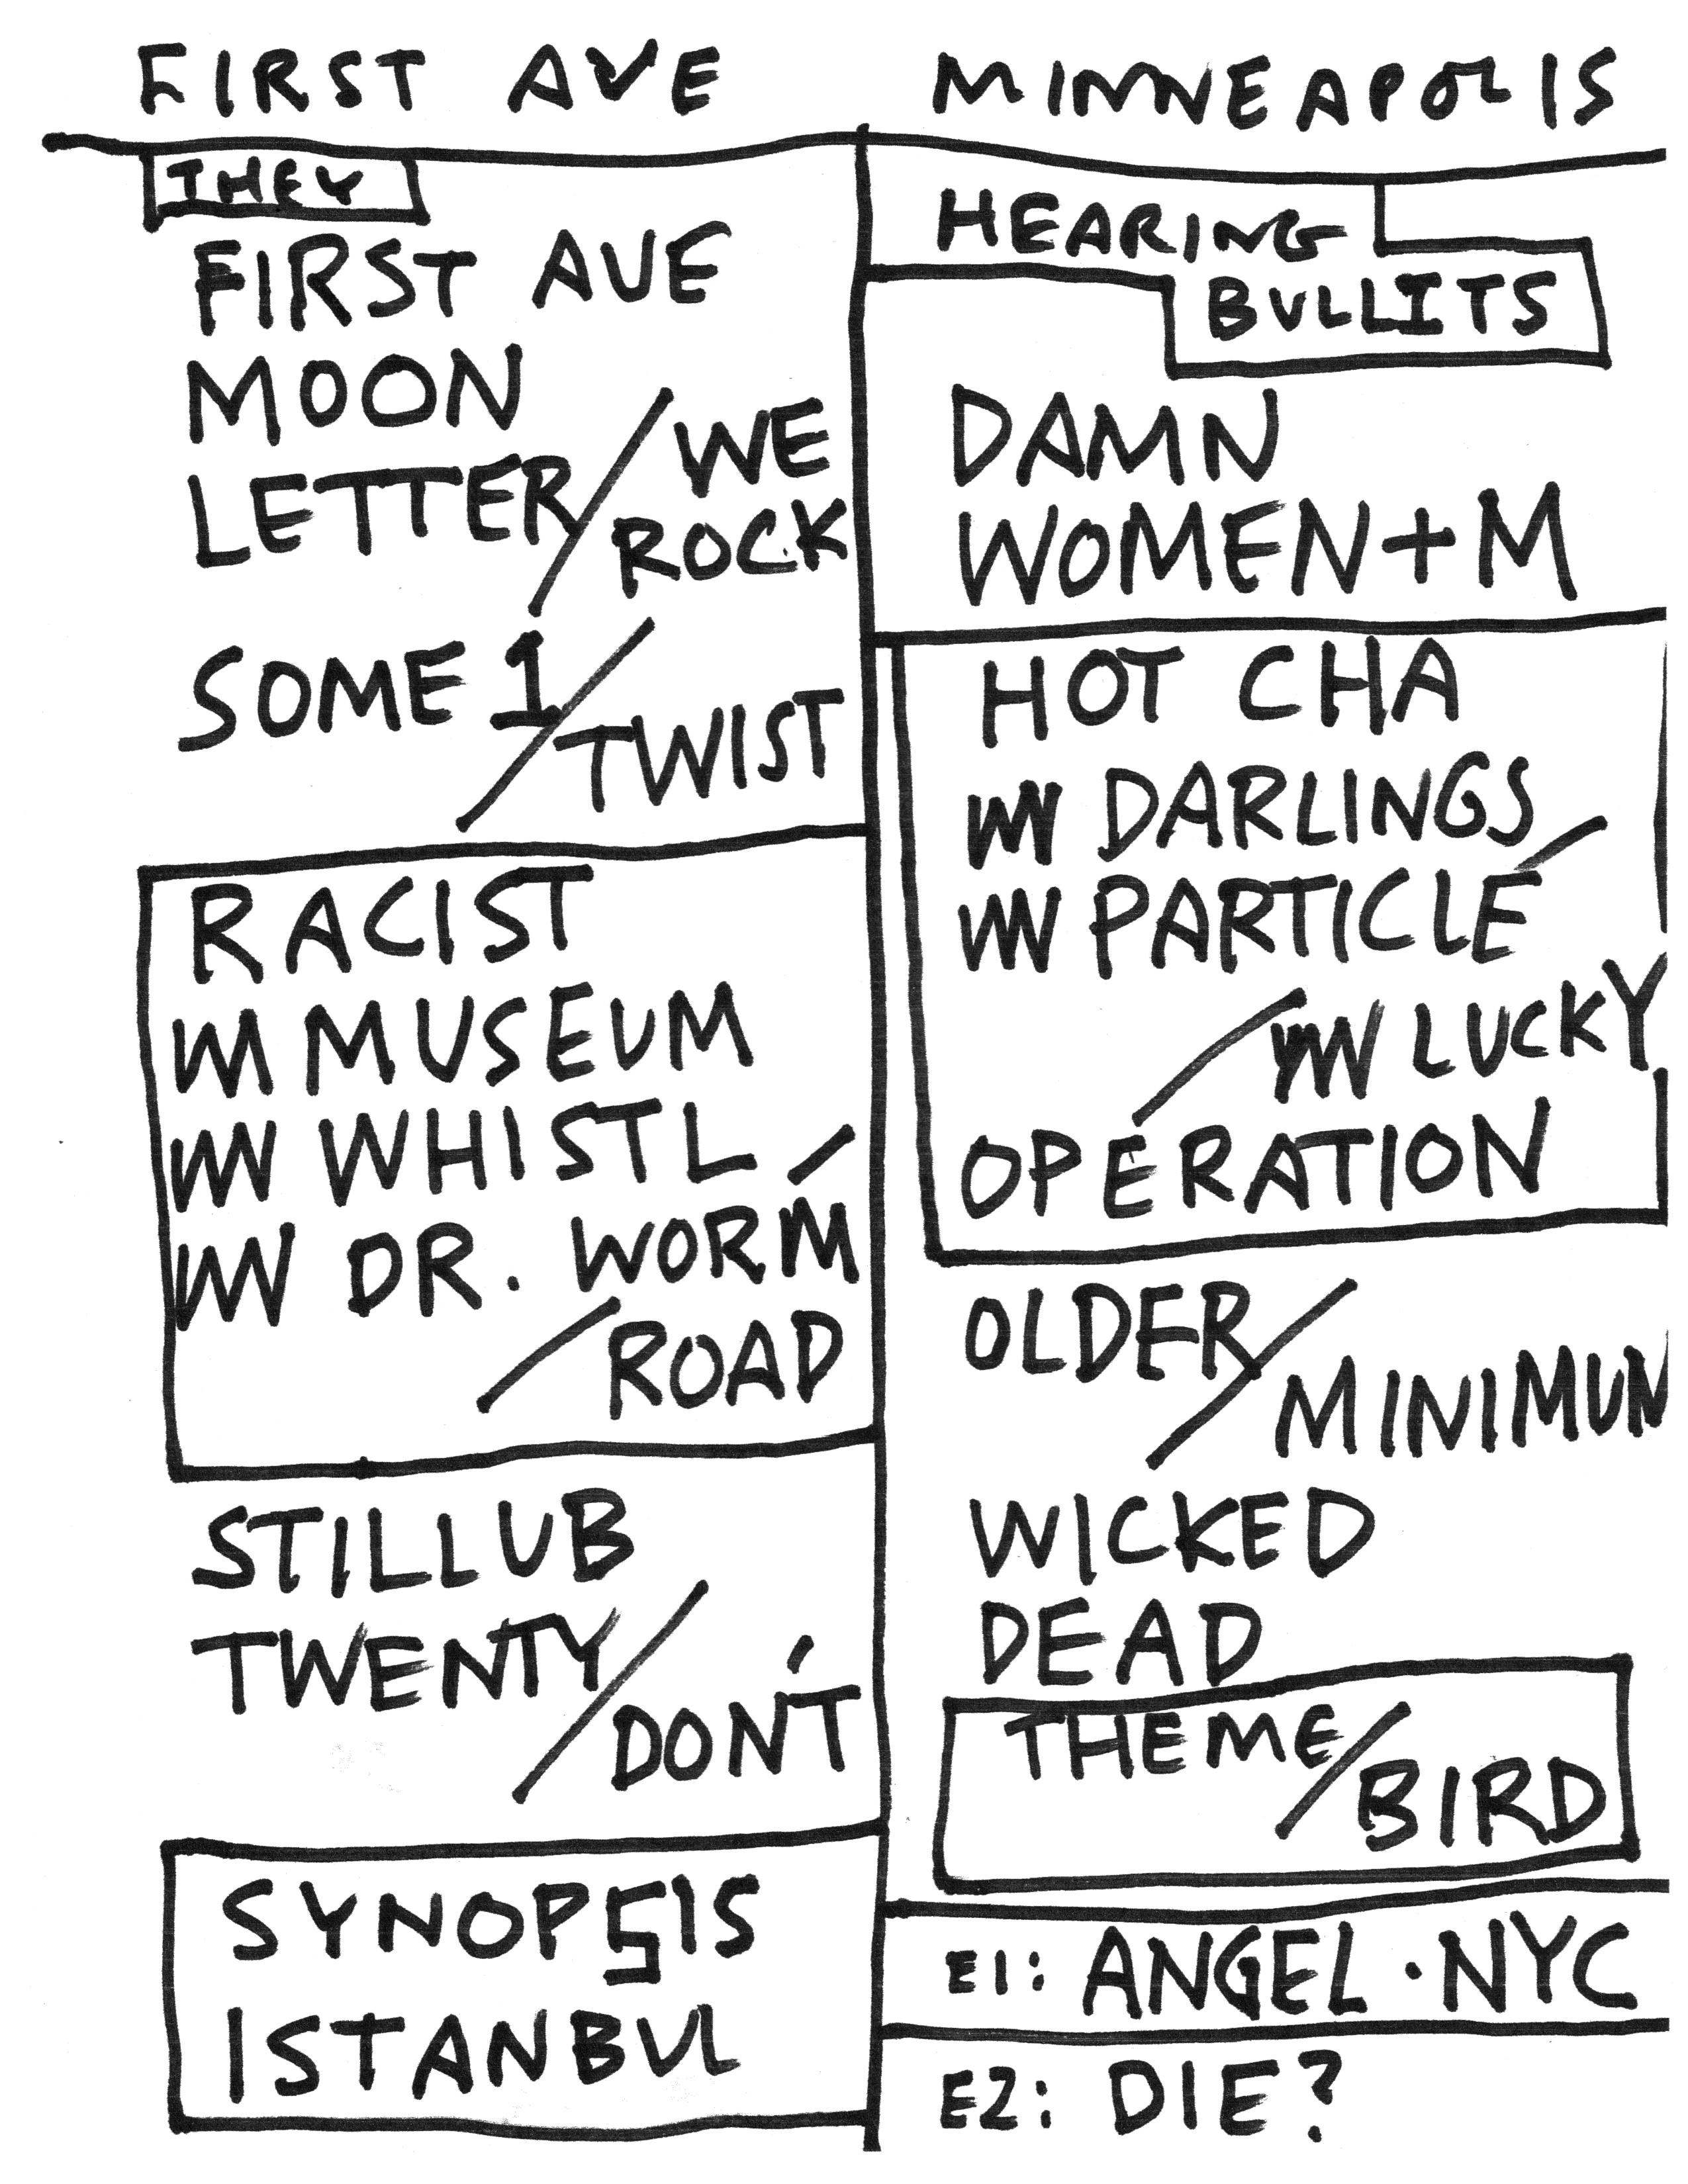 FIRST AVE MINNEAPOLIS
THEY
FIRST AVE
MOON
LETTER / WE
ROCK
SOME 1 / TWIST
RACIST
MUSEUM
WHISTL /
DR. WORM
/ ROAD
STILLUB
TWENTY / DON'T
SYNOPSIS
ISTANBUL
HEARING
BULLITS
DAMN
WOMEN + M
HOT CHA
DARLINGS
PARTICLE /
/ LUCKY
OPERATION
OLDER / MINIMUM
WICKED
DEAD
THEME / BIRD
E1: ANGEL · NYC
E2: DIE?